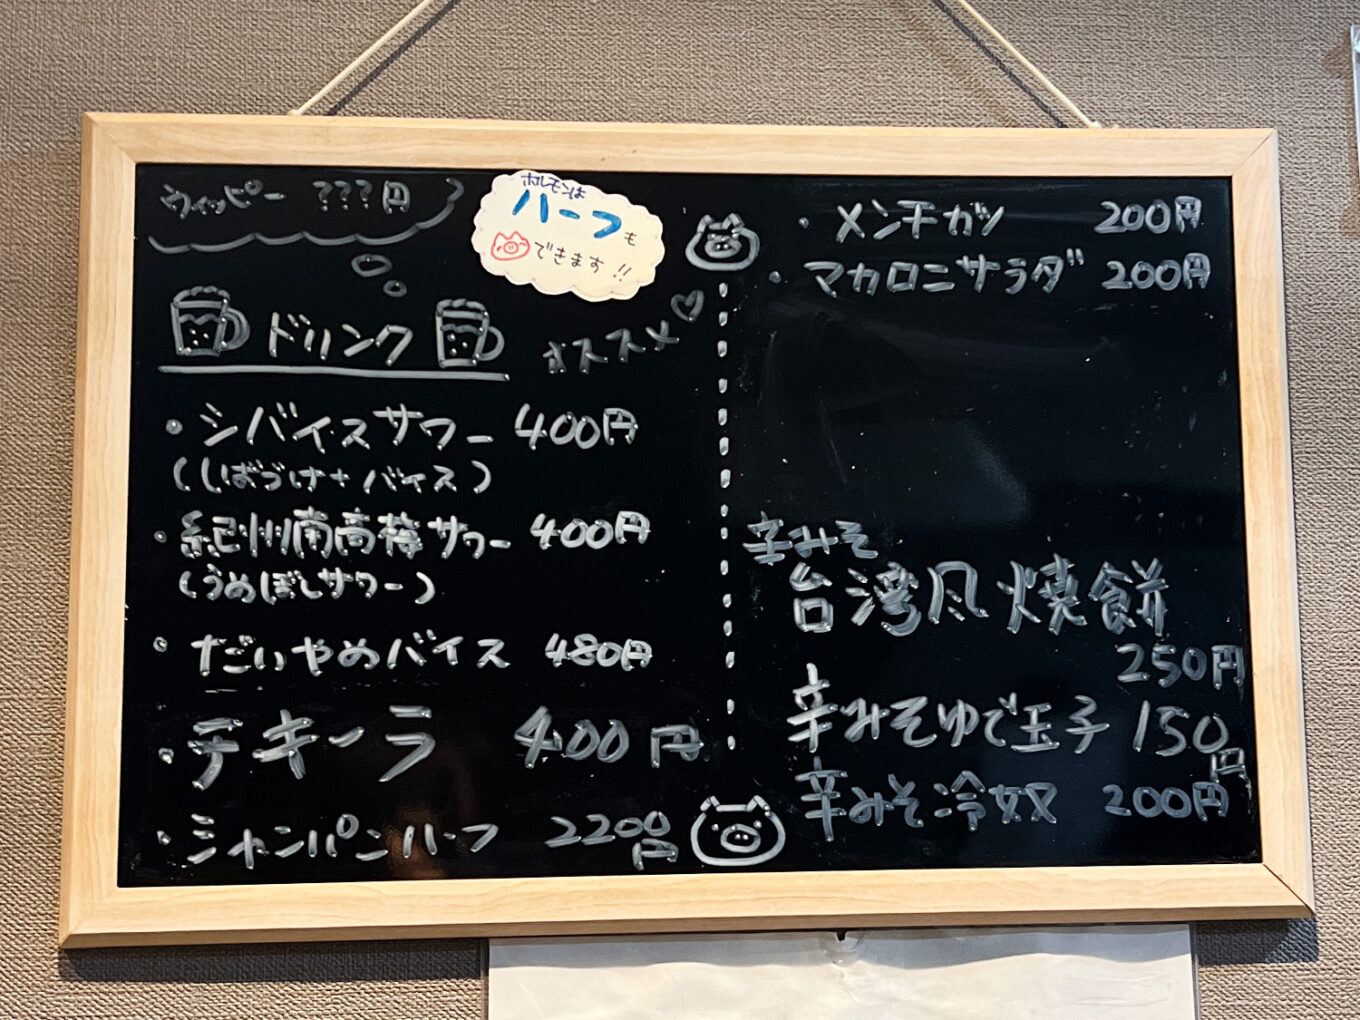 ウィッピー ???円
ホルモンは
ハーフも
できます!!
ドリンク
オススメ♡
・シバイスサワー 400円
(しばづけ+バイス)
・紀州南高梅サワー 400円
(うめぼしサワー)
・だいやめバイス 480円
・テキーラ 400円
・シャンパンハーフ 2200円
・メンチカツ 200円
・マカロニサラダ 200円
辛みそ
台湾風焼餅
250円
辛みそゆで玉子 150円
辛みそ冷奴 200円